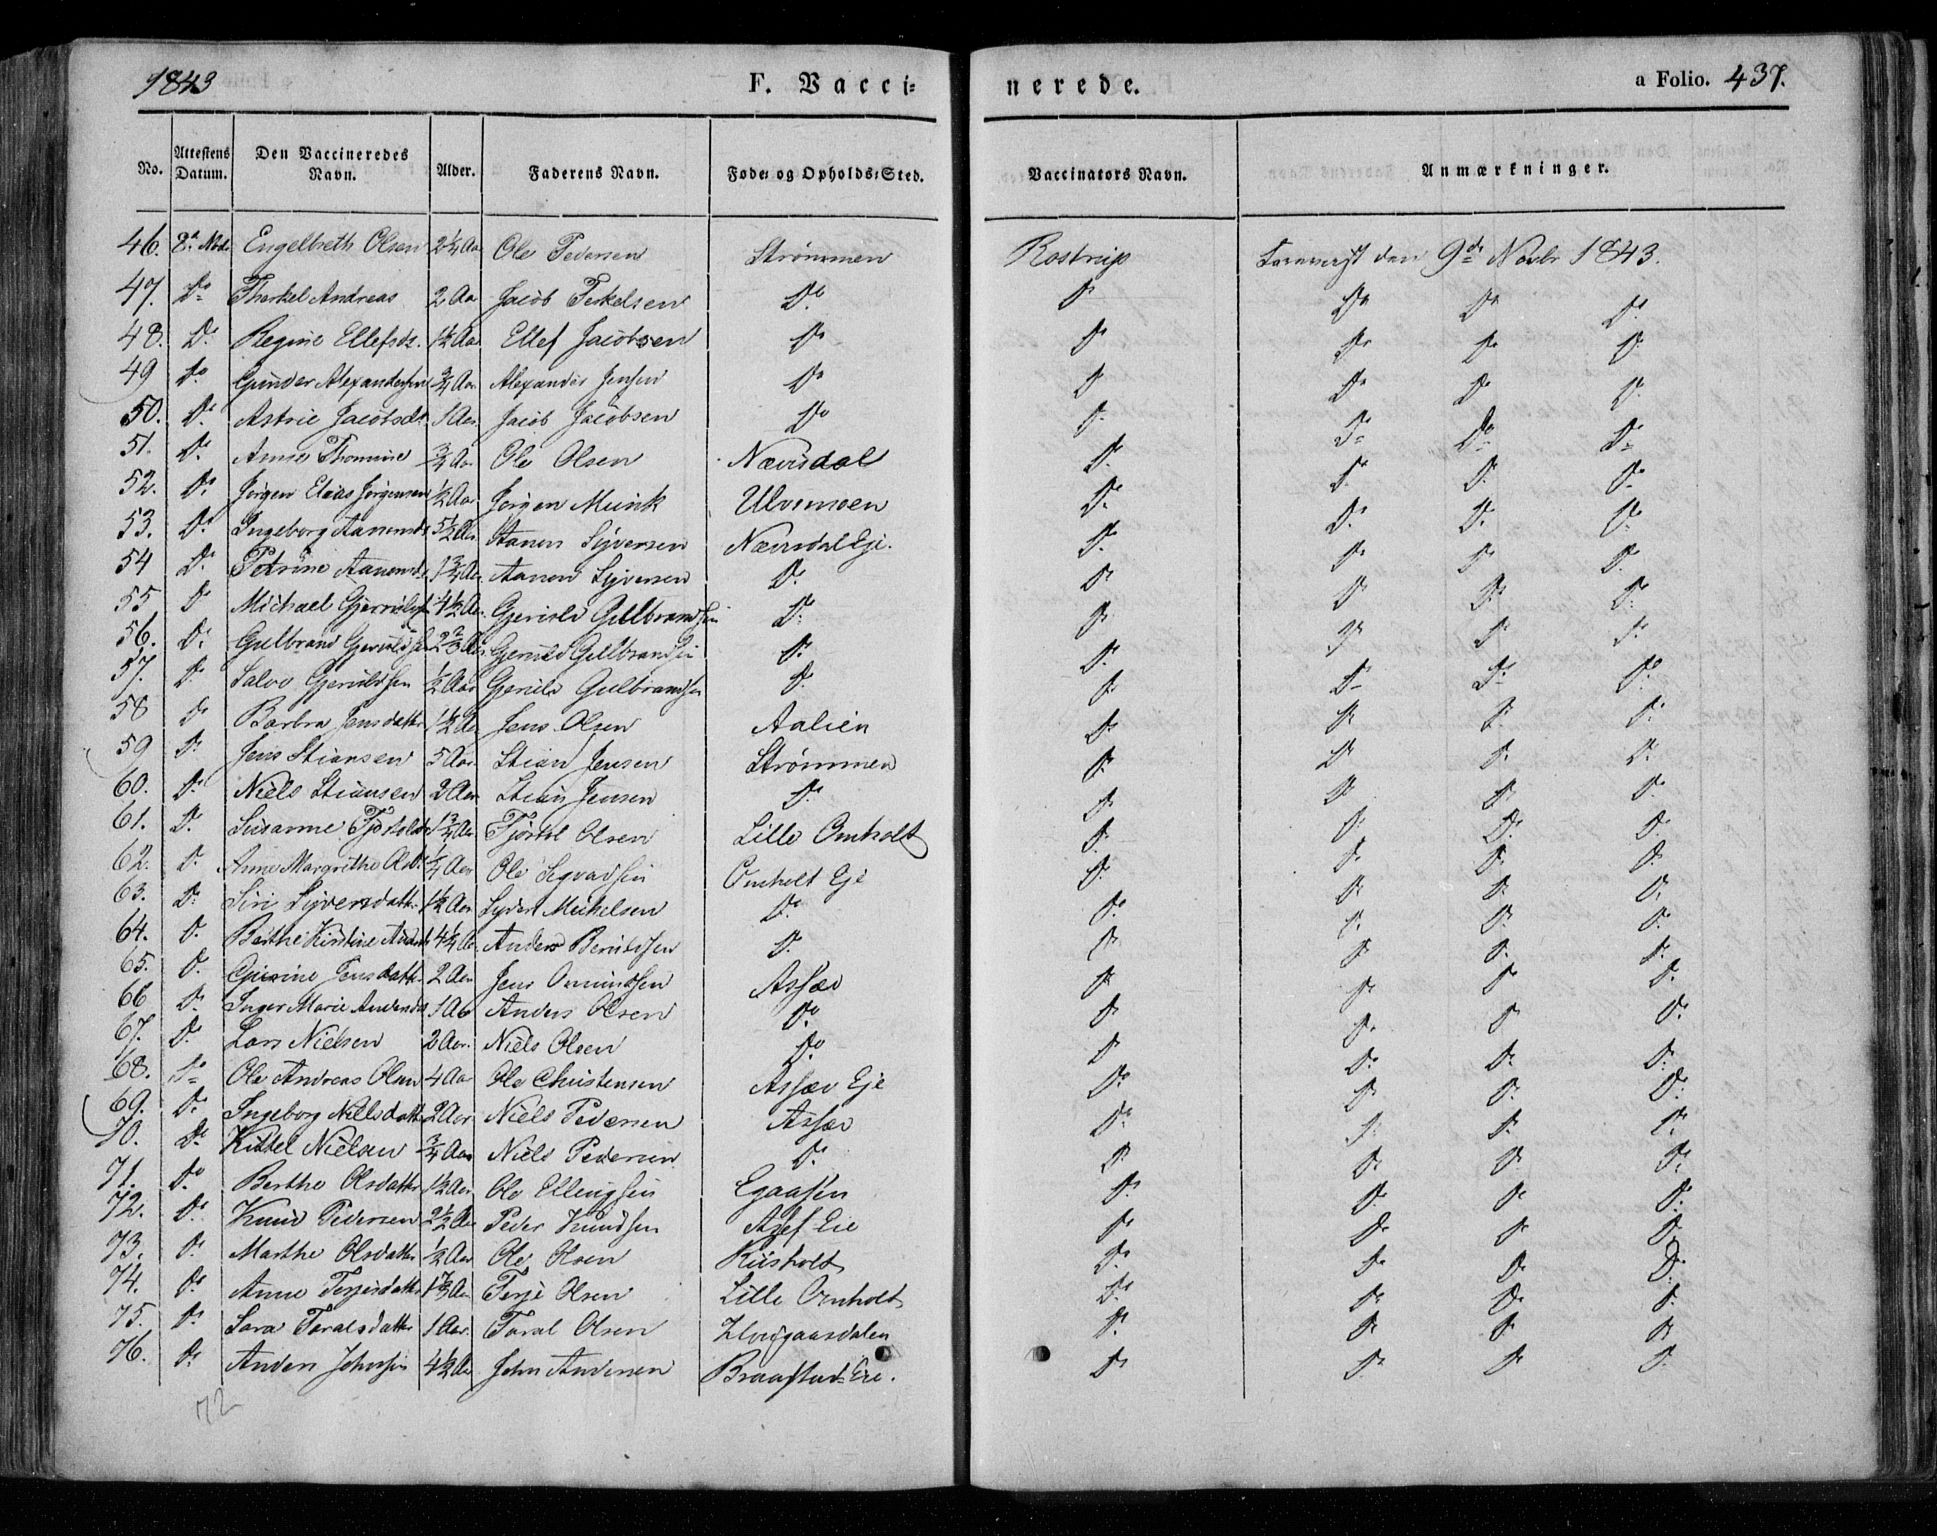 1843 F. Vacci= nerede. a Folio. 437.
No. Attestens Datum. Den Vaccineredes Navn. Alder. Faderens Navn. Føde= og Opholds=Sted. Vaccinators Navn. Anmærkninger.
46. 8de Engelbreth Olsen 2 1/4 Aar Ole Pedersen Strømmen Rostrup den 9de Novbr 1843.
47. Do Therkel Andreas 2 Aar Jacob Terkelsen Do Do Do Do Do
48. Do Regine Ellefsdr. 1 1/2 Aar Ellef Jacobsen Do Do Do Do Do
49 Do Gunder Alexandersen 3/4 Aar Alexander Jensen Do Do Do Do Do
50. Do Astrie Jacobsdr 1 Aar. Jacob Jacobsen Do Do Do Do Do
51. Do Anne Thomine 3/4 Aar Ole Olsen Næversdal Do Do Do Do
52. Do Jørgen Elias Jørgensen 1/2 Aar Jørgen Munk Ulvemoen Do Do Do Do
53. Do Ingeborg Aanensdr 5 1/2 Aar Aanen Syversen Næversdal Eje. Do Do Do Do
54 Do Petrine Aanensdr 1 3/4 Aar Aanen Syversen Do Do Do Do Do
55 Do Michael 4 1/2 Aar Gjeruld Gulbrandsen Do Do Do Do Do
56. Do Gulbrand Gjeruldsen 2 2/3 Aar Gjeruld Gulbrandsen Do Do Do Do Do
57. Do Salve Gjeruldsen 1/2 Aar Gjeruld Gulbrandsen Do Do Do Do Do
58 Do Barbra Jensdatter 1 1/2 Aar Jens Olsen Aalien Do Do Do Do
59 Do Jens Stiansen 5 Aar Stian Jensen Strømmen Do Do Do Do
60. Do Niels Stiansen 2 Aar Stian Jensen Do Do Do Do Do
61. Do Susanne 1 3/4 Aar Tjøstol Olsen Lille Omholt Do Do Do Do
62. Do Anne Margrethe Olsdr 1/4 Aar Ole Omholt Eje Do Do Do Do
63. Do Siri Syversdatter 1 1/2 Aar Syvert Mickelsen Do Do Do Do Do
64. Do Berthe Kirstine 4 1/2 Aar Anders Beruldsen Do Do Do Do Do
65. Do Gurine Jensdatter 2 Aar Jens Omundsen Assæv Do Do Do Do
66 Do Inger Marie Andersdr 1 Aar Anders Olsen Do Do Do Do Do
67. Do Lars Nielsen 2 Aar. Niels Olsen Do Do Do Do Do
68. Do Ole Andreas Olsen 4 Aar Ole Christensen Assæv Eje Do Do Do Do
69. Do Ingeborg Nielsdatter 2 Aar Niels Pedersen Assæv Do Do Do Do
70. Do Kittel Nielsen 3/4 Aar Niels Pedersen Do Do Do Do Do
71. Do Berthe Olsdatter 1 1/2 Aar Ole Ellingsen Egaasen Do Do Do Do
72. Do Knud Pedersen 2 1/2 Aar Peder Knudsen Assef Eie Do Do Do Do
73. Do Marthe Olsdatter 1/2 Aar Ole Olsen Riisholt Do Do Do Do
74. Do Anne Terjesdatter Terje Olsen Lille Omholt Do Do Do Do
75. Do Sara Taralsdatter 1 Aar. Taral Olsen Do Do Do Do
76. Do Anders Johnsen 4 1/2 Aar John Andersen Braastad Eie. Do Do Do Do
72